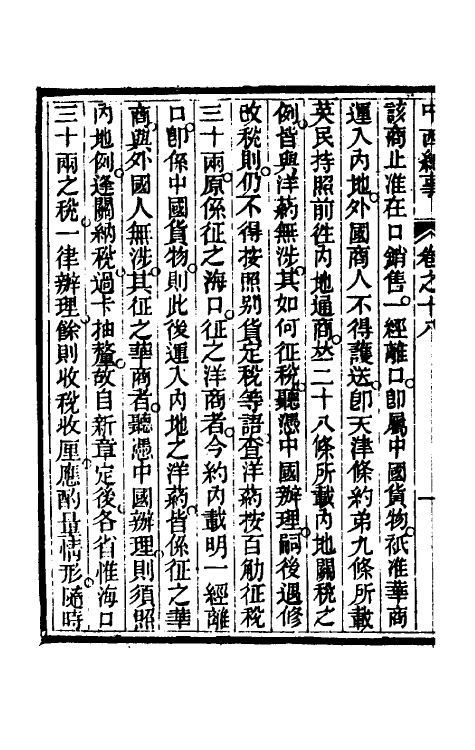 中西紀事 卷之十八 一
該商止准在口銷售一經離口卽屬中國貨物祇准華商
運入內地外國商人不得護送卽天津條約弟九條所載
英民持照前往內地通商並二十八條所載內地關稅之
例皆與洋葯無涉其如何征稅聽憑中國辦理嗣後遇修
改稅則仍不得按照別貨定稅等語查洋葯按百觔征稅
三十兩原係征之海口征之洋商者今約內載明一經離
口卽係中國貨物則此後運入內地之洋葯皆係征之華
商與外國人無涉其征之華商者聽憑中國辦理則須照
內地例逢關納稅過卡抽釐故自新章定後各省惟海口
三十兩之稅一律辦理餘則收稅收厘應酌量情形隨時